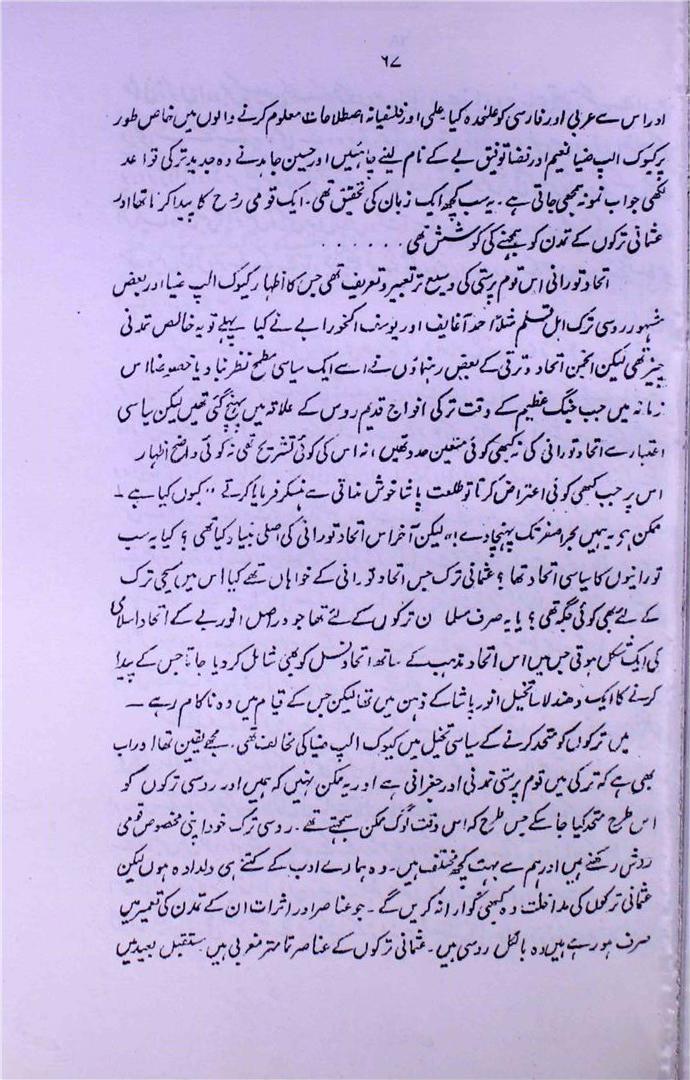 ۶۷
اور اس سے عربی اور فارسی کو علیٰحدہ کیا۔ علمی اور فلسفیانہ اصطلاحات معلوم کرنے والوں میں خاص طور
پر کیوک الپ ضیا نعیم اور رضا توفیق بے کے نام لینے چاہئیں اور حسین جاہد نے وہ جدید ترکی قواعد
لکھی جو اب نمونہ سمجھی جاتی ہے۔ یہ سب کچھ ایک زبان کی تحقیق تھی۔ ایک قومی روح کا پیدا کرنا تھا اور
عثمانی ترکوں کے تمدن کو سمجھنے کی کوشش تھی . . . . . .
اتحاد تورانی اس قوم پرستی کی وسیع تر تعبیر و تعریف تھی جس کا اظہار کیوک الپ ضیا اور بعض
مشہور روسی ترک اہل قلم مثلاً احمد آغایف اور یوسف اکچورا بے نے کیا پہلے تو یہ خالص تمدنی
چیز تھی لیکن انجمن اتحاد و ترقی کے بعض رہنماؤں نے اسے ایک سیاسی مطمح نظر بنا دیا خصوصاً اس
زمانہ میں جب جنگ عظیم کے وقت ترکی افواج قدیم روس کے علاقہ میں پہنچ گئی تھیں لیکن سیاسی
اعتبار سے اتحاد تورانی کی نہ کبھی کوئی متعین حدود تھیں، نہ اس کی کوئی تشریح تھی نہ کوئی واضح اظہار
اس پر جب کبھی کوئی اعتراض کرتا تو طلعت پاشا خوش مذاقی سے ہنسکر فرمایا کرتے "کیوں کیا ہے ۔
ممکن ہو یہ ہمیں بحر اصفر تک پہنچا دے!" لیکن آخر اس اتحاد تورانی کی اصلی بنیاد کیا تھی؟ کیا یہ سب
تورانیوں کا سیاسی اتحاد تھا؟ عثمانی ترک جس اتحاد تورانی کے خواہاں تھے کیا اس میں مسیحی ترک
کے لئے بھی کوئی جگہ تھی؟ یا یہ صرف مسلمان ترکوں کے لئے تھا جو دراصل انور بے کے اتحاد اسلامی
کی ایک شکل ہوتی جس میں اس اتحاد مذہب کے ساتھ اتحاد نسل کو بھی شامل کر دیا جاتا جس کے پیدا
کرنے کا ایک دھندلا سا تخیل انور پاشا کے ذہن میں تھا لیکن جس کے قیام میں وہ ناکام رہے ۔
میں ترکوں کو متحد کرنے کے سیاسی تخیل میں کیوک الپ ضیا کی مخالف تھی۔ مجھے یقین تھا اور اب
بھی ہے کہ ترکی میں قوم پرستی تمدنی اور جغرافی ہے اور یہ ممکن نہیں کہ ہمیں اور روسی ترکوں کو
اس طرح متحد کیا جا سکے جس طرح کہ اس وقت لوگ ممکن سمجھتے تھے۔ روسی ترک خود اپنی مخصوص قومی
روش رکھتے ہیں اور ہم سے بہت کچھ مختلف ہیں۔ وہ ہمارے ادب کے کتنے ہی دلدادہ ہوں لیکن
عثمانی ترکوں کی مداخلت وہ کبھی گوارا نہ کریں گے۔ جو عناصر اور اثرات ان کے تمدن کی تعمیر میں
صرف ہو رہے ہیں وہ بالکل روسی ہیں۔ عثمانی ترکوں کے عناصر تمامتر مغربی ہیں مستقبل بعید میں